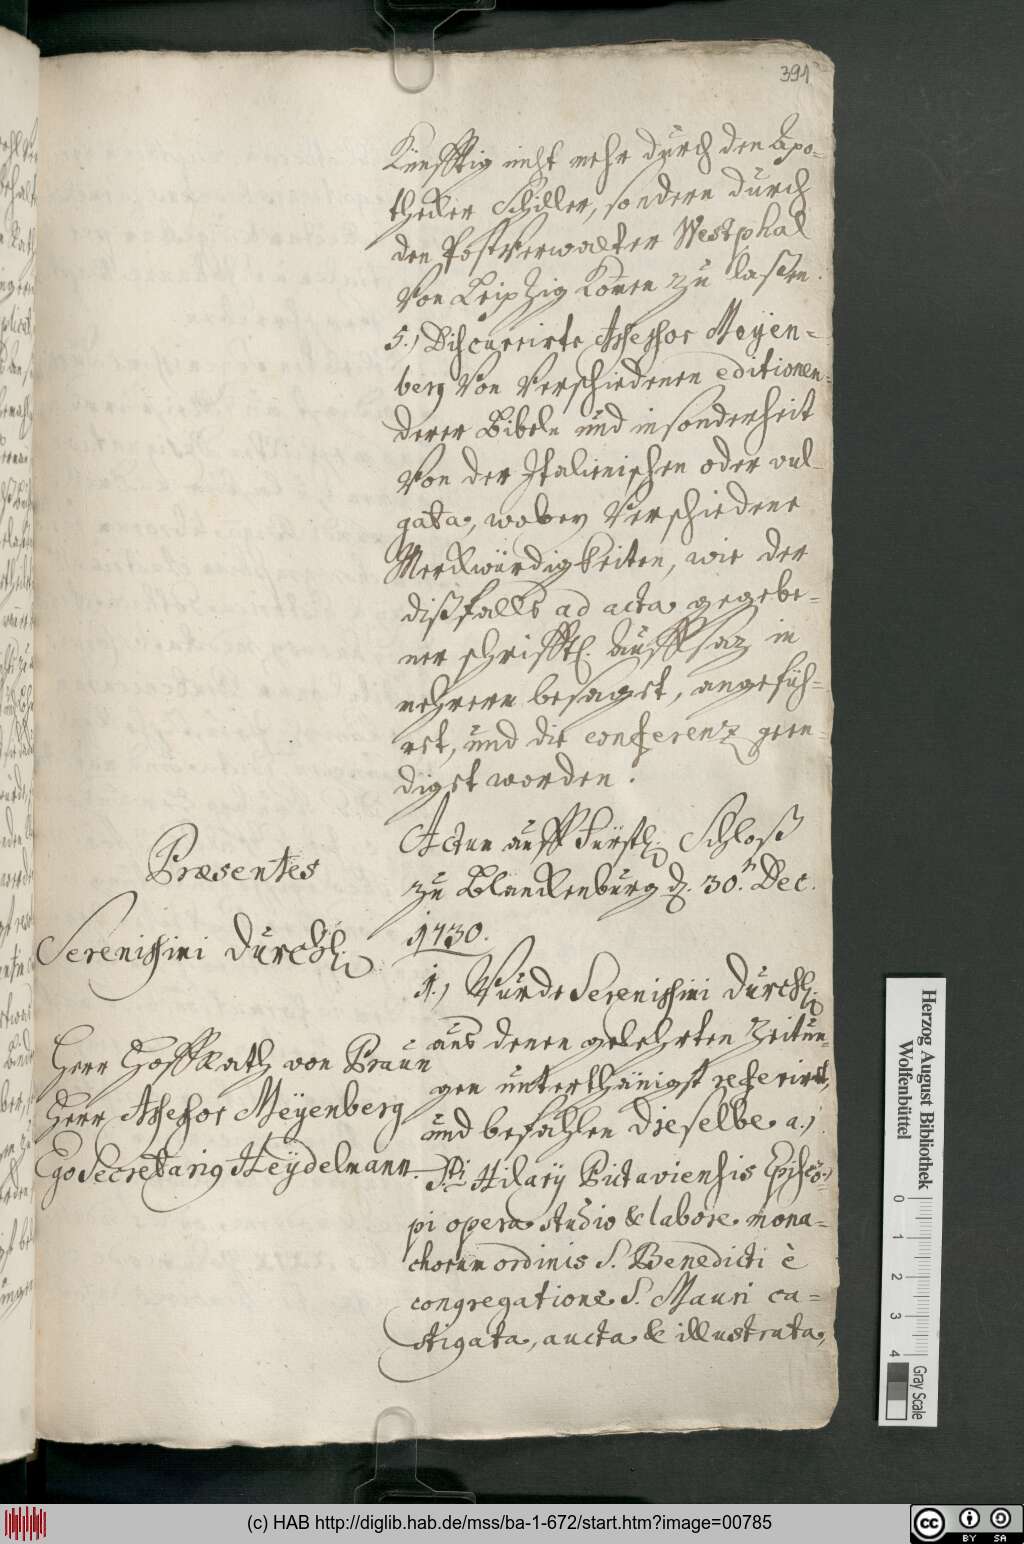 391
Künfftig nicht mehr durch den Apo-
thecker Schiller, sondern durch
den Postverwalter Westphal
von Leipzig kom̄en zu lassen.
5.) Discurrirte Assessor Meÿen-
berg von verschiedenen editionen
derer Bibeln und insonderheit
von der Italienischen oder vul-
gata, wobey verschiedene
Merckwürdigkeiten, wie der
dißfalls ad acta gegebe-
ner schrifftl. Auffsaz in
mehrern besaget, angefüh-
ret, und die conferenz geen-
diget worden.
Actum auff Fürstl. Schloß
zu Blanckenburg d. 30.n Dec.
1730.
Præsentes
Serenissimi Durchl.
Herr HoffRath von Praun
Herr Assessor Meÿenberg
Ego Secretarius Heÿdelmann.
1.) Wurde Serenissimi Durchl.
aus denen gelehrten Zeitun-
gen unterthänigst referiret,
und befahlen dieselbe a.)
Sti Hilarÿ Pictaviensis Episco-
pi opera studio & labore mona-
chorum ordinis S. Benedicti è
congregatione S. Mauri ca-
stigata, aucta & illustrata,
Herzog August Bibliothek
Wolfenbüttel
0 1 2 3 4
Gray Scale
(c) HAB http://diglib.hab.de/mss/ba-1-672/start.htm?image=00785
cc BY SA